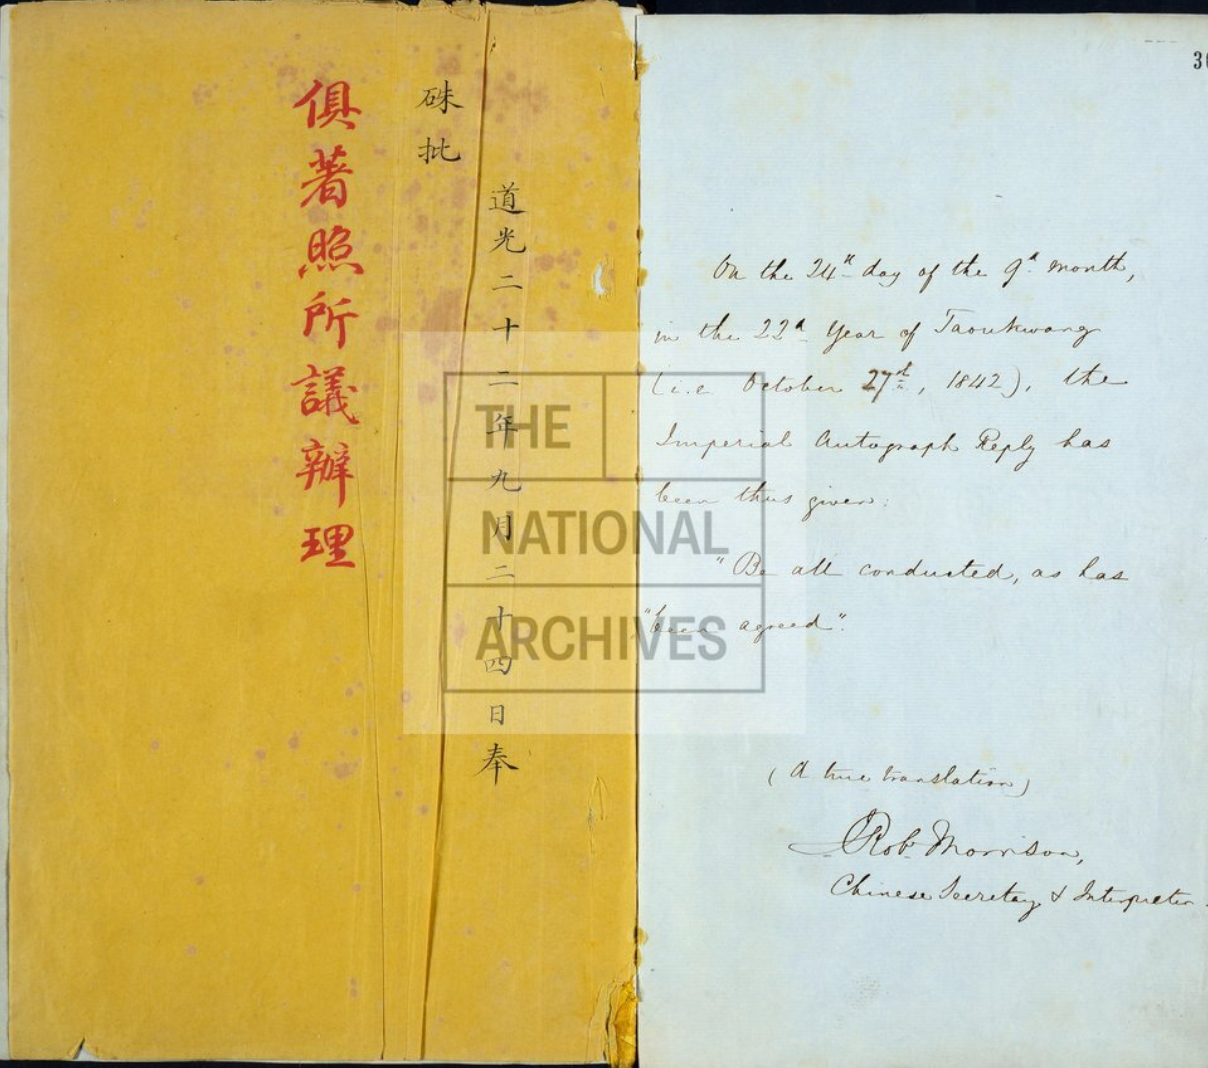 道光二十二年九月二十四日奉
硃批
俱著照所議辦理
On the 24th day of the 9th month,
in the 22d Year of Taoukwang
(i.e. October 27th, 1842), the
Imperial Autograph Reply has
been thus given:
"Be all conducted, as has
"been agreed".
(A true translation)
Morrison,
Chinese Secretary & Interpreter.
THE
NATIONAL
ARCHIVES